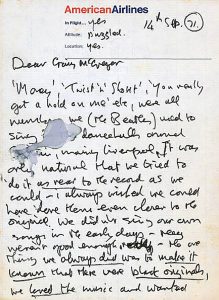 AmericanAirlines
In Flight... yes
14th Sep. 71.
Altitude: puzzled.
Location: yes.
Dear Craig McGregor
'Money', 'Twist 'n' Shout', 'You really
got a hold on me' etc, were all
numbers we (the Beatles) used to
sing dancehalls around
mainly Liverpool. It was
only natural that we tried to
do it as near to the record as we
could - i always wished we could
have done them even closer to the
original. We didn't sing our own
songs in the early days - they
weren't good enough - the one
thing we always did was to make it
known that there were black originals,
we loved the music and wanted